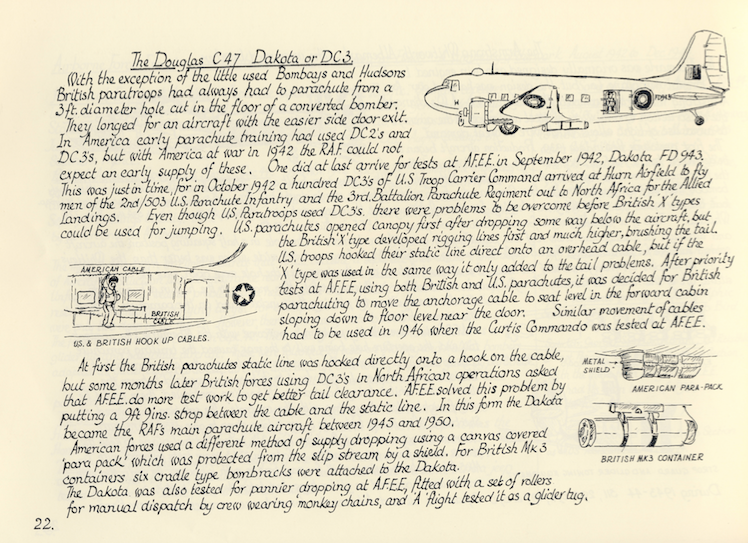 The Douglas C47 Dakota or DC3.
With the exception of the little used Bombays and Hudsons
British paratroops had always had to parachute from a
3ft. diameter hole cut in the floor of a converted bomber.
They longed for an aircraft with the easier side door exit.
In America early parachute training had used DC2's and
DC3's, but with America at war in 1942 the RAF could not
expect an early supply of these. One did at last arrive for tests at A.F.E.E. in September 1942, Dakota FD 943.
This was just in time, for in October 1942 a hundred DC3's of U.S Troop Carrier Command arrived at Hurn Airfield to fly
men of the 2nd/503 U.S. Parachute Infantry and the 3rd. Battalion Parachute Regiment out to North Africa for the Allied
Landings. Even though U.S. Paratroops used DC3's. there were problems to be overcome before British 'X' types
could be used for jumping. U.S. parachutes opened canopy first after dropping some way below the aircraft, but
the British 'X' type developed rigging lines first and much higher, brushing the tail.
U.S. troops hooked their static line direct onto an overhead cable, but if the
'X' type was used in the same way it only added to the tail problems. After priority
tests at AFEE, using both British and U.S. parachutes, it was decided for British
parachuting to move the anchorage cable to seat level in the forward cabin
sloping down to floor level near the door. Similar movement of cables
had to be used in 1946 when the Curtis Commando was tested at A.F.E.E.
AMERICAN CABLE
BRITISH
CABLE
U.S. & BRITISH HOOK UP CABLES.
At first the British parachutes static line was hooked directly onto a hook on the cable,
but some months later British forces using DC3's in North African operations asked
that A.F.E.E. do more test work to get better tail clearance. A.F.E.E solved this problem by
putting a 9ft 9ins. strop between the cable and the static line. In this form the Dakota
became the RAF's main parachute aircraft between 1945 and 1950.
American forces used a different method of supply dropping using a canvas covered
'para pack' which was protected from the slip stream by a shield. For British Mk 3
containers six cradle type bombracks were attached to the Dakota.
The Dakota was also tested for pannier dropping at A.F.E.E, fitted with a set of rollers
for manual dispatch by crew wearing monkey chains, and 'A' flight tested it as a glider tug.
METAL
SHIELD
AMERICAN PARA-PACK
BRITISH MK3 CONTAINER
22.